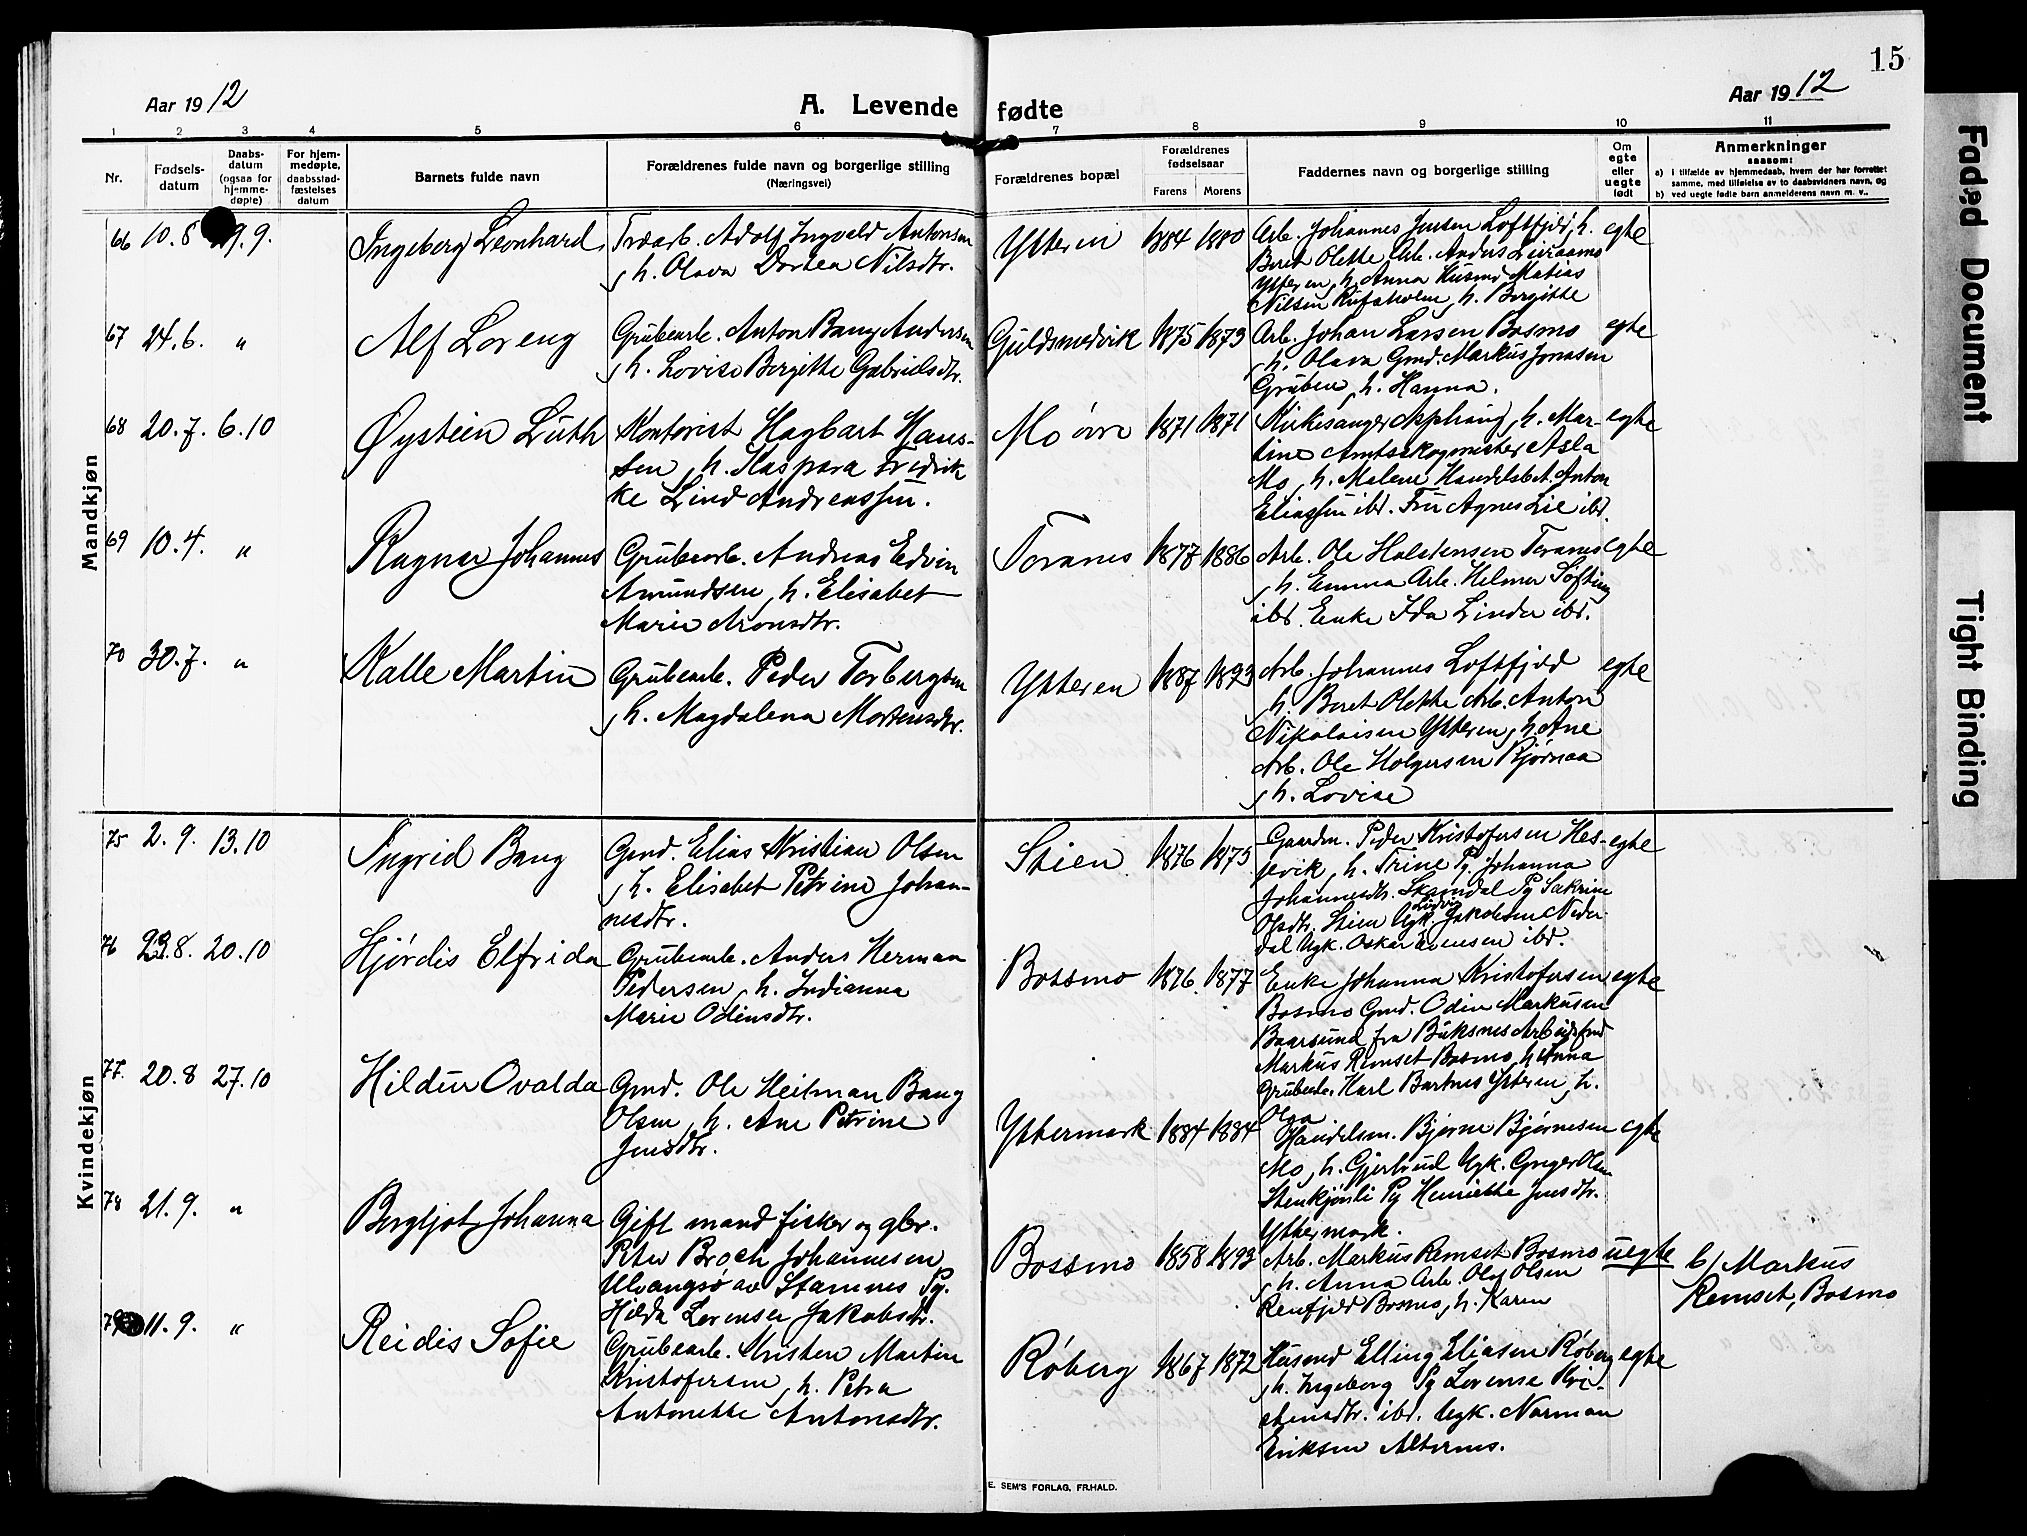 15
Aar 1912
A. Levende fødte
Aar 1912
1 2 3 4 5 6 7 8 9 10 11
Nr.
Fødsels-
datum
Daabs-
datum
(ogsaa for
hjemme-
døpte)
For hjem-
medøpte,
daabsstad-
fæstelses
datum
Barnets fulde navn
Forældrenes fulde navn og borgerlige stilling
(Næringsvei)
Forældrenes bopæl
Forældrenes
fødselsaar
Farens Morens
Faddernes navn og borgerlige stilling
Om
egte
eller
uegte
født
Anmerkninger
saasom:
a) i tilfælde av hjemmedaab, hvem der har forrettet
samme, med tilføielse av to daabsvidners navn, og
b) ved uegte fødte barn anmelderens navn m. v..
Mandkjøn
66 10.8 9.9. Ingeberg Leonhard
Træarb. Adolf Ingvald Antonsen
, h. Olava Dortea Nilsdtr.
Ytteren 1884 1880
Arb. Johannes Jensen Loftfjeld, h. egte
Beret Olette Arb. Anders
Ytteren, h. Anna Husmd Matias
Nilsen h. Bergitte
67 24.6. " Alf Loreng
Grubearb. Anton Bang Andersen
, h. Lovise Bergitte Gabrielsdtr.
Guldsmedvik 1875 1873
Arb. Johan Larsen Bosmo egte
, h. Olava Gmd. Markus Jonasen
Gruben, h. Hanna.
68 20.7. 6.10 Øystein Luth
Kontorist Hagbart Hans-
sen, h. Kaspara Fredrik
ke Lind Andreassen.
Mo øvre 1871 1871
Kirkesanger h. Mar- egte
tine Amtsskogmester Asla
Mo, h. Malene Handelsbet. Anton
Eliassen ibd. Fru Agnes Lie ibd.
69 10.4. " Ragnar Johannes
Grubearb. Andreas Edvin
Amundsen, h. Elisabet
Marie Aronsdtr.
Toranes 1877 1886
Arb. Ole Halstensen Toranes egte
, h. Emma Arb. Helmer Søfting
ibd. Enke Ida Linder ibd.
70 30.7. " Kalle Martin
Grubearb. Peder Torbergsen
, h. Magdalena Mortensdtr.
Ytteren 1887 1893
Arb. Johannes Loftfjeld egte
, h. Beret Olette Arb. Anton
Nikolaisen Ytteren, h. Ane
Arb. Ole Holgersen Bjørnaa
, h. Lovise
Kvindekjøn
75 2.9. 13.10 Ingrid Bang
Gmd. Elias Kristian Olsen
, h. Elisabet Petrine Johan-
nesdtr.
Stien 1876 1875
Gaardm. Peder Kristofersen Hes- egte
jevik, h. Trine Pg. Johanna
Johannesdtr. Skamdal Pg Sakrine
Olsdtr. Stien Ugk. Ludvig Jakobsen Neder-
dal Ugk. Oskar Evensen ibd.
76 23.8. 20.10 Hjørdis Elfrida
Grubearb. Anders Herman
Pedersen, h. Indianna
Marie Odinsdtr.
Bossmo 1876. 1877
Enke Johanna Kristofersen egte
Bosmo Gmd. Odin Markusen
Baarsund fra Buksnes
Markus Remset Bosmo, h. Anna
Grubearb. Karl Bartnes Ytteren, h.
Olga
77. 20.8 27.10 Hildur Ovalda
Gmd. Ole Heitman Bang
Olsen, h. Ane Petrine
Jensdtr.
Yttermark 1884 1884
Handelsm. Bjarne Bjørnesen egte
Mo, h. Gjertrud Ugk. Greger Olsen
Stenkjønli Pg Henriette Jensdtr.
Yttermark.
78 21.9. " Bergljot Johanna
Gift mand fisker og gbr.
Peter Broch Johannesen
Ulvangsø av Stamnes Pg.
Hilda Lorense Jakobsdtr.
Bossmo 1858 1893
Arb. Markus Remset Bosmo uegte
, h. Anna Arb. Ole Olsen
Renfjeld Bosmo, h. Karen
b/ Markus
Remset, Bosmo
79 11.9. " Reidis Sofie
Grubearb. Kristen Martin
Kristofersen, h. Petra
Antonette Antonsdtr.
Røberg 1867 1872
Husmd Elling Eliasen Røberg egte
, h. Ingeborg Pg Lorense Kri-
stensdtr. ibd. Ugk. Norman
Eriksen Alternes.
E. SEM'S FORLAG, FR.HALD.
Faded Document
Tight Binding